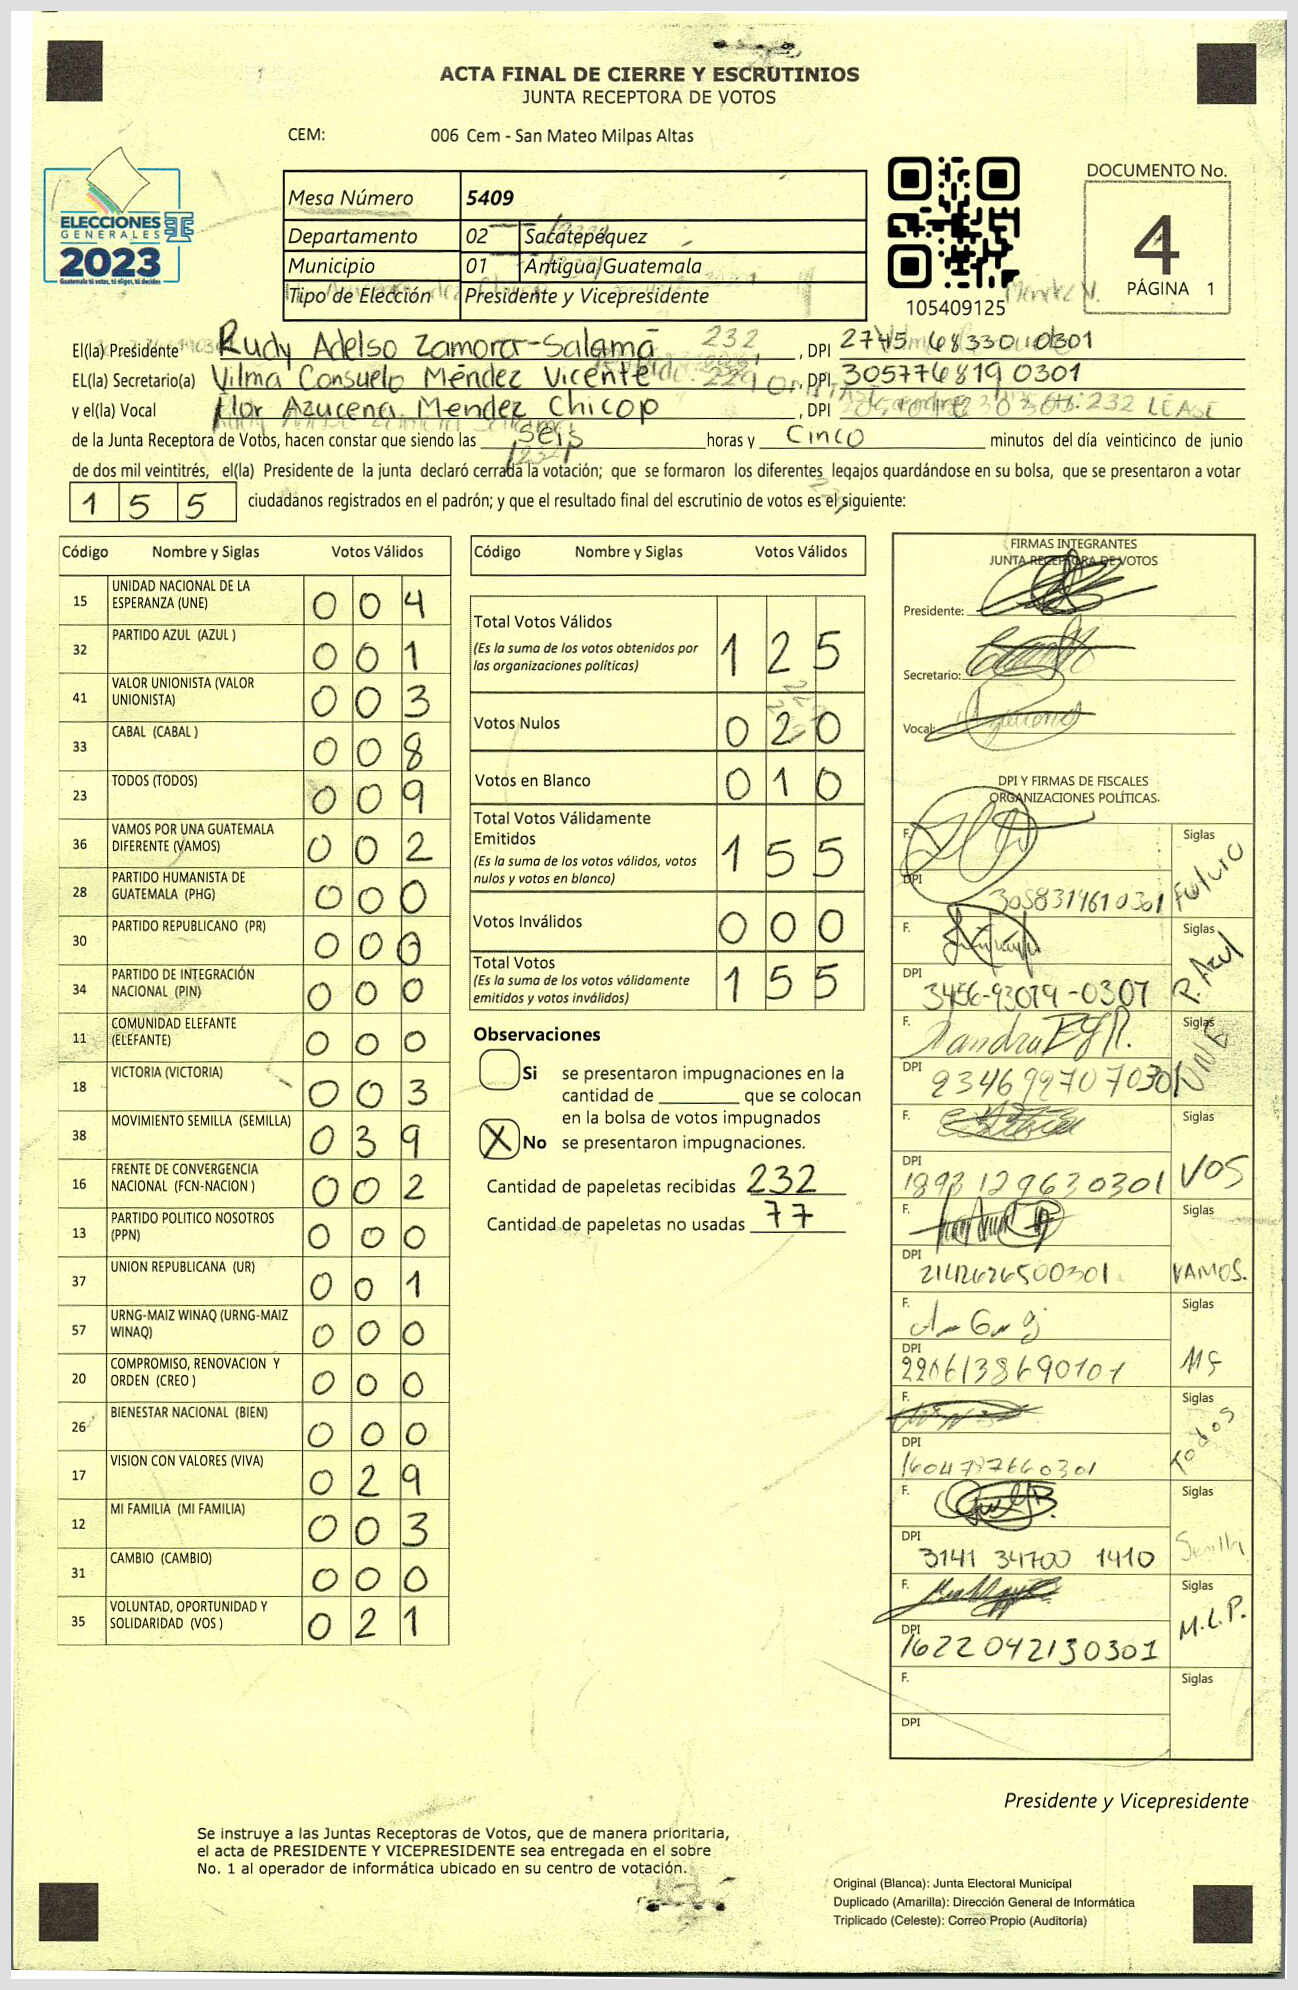 ACTA FINAL DE CIERRE Y ESCRUTINIOS
JUNTA RECEPTORA DE VOTOS
CEM: 006 Cem - San Mateo Milpas Altas
ELECCIONES
GENERALES
2023
Guatemala tú votas, tú eliges, tú decides
Mesa Número 5409
Departamento 02 Sacatepéquez
Municipio 01 Antigua Guatemala
Tipo de Elección Presidente y Vicepresidente
105409125
DOCUMENTO No.
4
PÁGINA 1
El(la) Presidente Rudy Adelso Zamora Salamá 232, DPI 2745 68330 0301
EL(la) Secretario(a) Vilma Consuelo Méndez Vicente, DPI 305776819 0301
y el(la) Vocal Flor Azucena Mendez Chicop, DPI 232 LEASE
de la Junta Receptora de Votos, hacen constar que siendo las seis horas y cinco minutos del día veinticinco de junio
de dos mil veintitrés, el(la) Presidente de la junta declaró cerrada la votación; que se formaron los diferentes legajos quardándose en su bolsa, que se presentaron a votar
155 ciudadanos registrados en el padrón; y que el resultado final del escrutinio de votos es el siguiente:
Código Nombre y Siglas Votos Válidos
15 UNIDAD NACIONAL DE LA ESPERANZA (UNE) 004
32 PARTIDO AZUL (AZUL ) 001
41 VALOR UNIONISTA (VALOR UNIONISTA) 003
33 CABAL (CABAL ) 008
23 TODOS (TODOS) 009
36 VAMOS POR UNA GUATEMALA DIFERENTE (VAMOS) 002
28 PARTIDO HUMANISTA DE GUATEMALA (PHG) 000
30 PARTIDO REPUBLICANO (PR) 000
34 PARTIDO DE INTEGRACIÓN NACIONAL (PIN) 000
11 COMUNIDAD ELEFANTE (ELEFANTE) 000
18 VICTORIA (VICTORIA) 003
38 MOVIMIENTO SEMILLA (SEMILLA) 039
16 FRENTE DE CONVERGENCIA NACIONAL (FCN-NACION ) 002
13 PARTIDO POLITICO NOSOTROS (PPN) 000
37 UNION REPUBLICANA (UR) 001
57 URNG-MAIZ WINAQ (URNG-MAIZ WINAQ) 000
20 COMPROMISO, RENOVACION Y ORDEN (CREO ) 000
26 BIENESTAR NACIONAL (BIEN) 000
17 VISION CON VALORES (VIVA) 029
12 MI FAMILIA (MI FAMILIA) 003
31 CAMBIO (CAMBIO) 000
35 VOLUNTAD, OPORTUNIDAD Y SOLIDARIDAD (VOS ) 021
Código Nombre y Siglas Votos Válidos
Total Votos Válidos 125
(Es la suma de los votos obtenidos por
las organizaciones políticas)
Votos Nulos 020
Votos en Blanco 010
Total Votos Válidamente
Emitidos 155
(Es la suma de los votos válidos, votos
nulos y votos en blanco)
Votos Inválidos 000
Total Votos 155
(Es la suma de los votos válidamente
emitidos y votos inválidos)
Observaciones
Si se presentaron impugnaciones en la
cantidad de ________ que se colocan
en la bolsa de votos impugnados
X No se presentaron impugnaciones.
Cantidad de papeletas recibidas 232
Cantidad de papeletas no usadas 77
FIRMAS INTEGRANTES
JUNTA RECEPTORA DE VOTOS
Presidente:
Secretario:
Vocal:
DPI Y FIRMAS DE FISCALES
ORGANIZACIONES POLÍTICAS.
F. Siglas Futuro
DPI 3058314610301
F. Siglas P. Azul
DPI 3456-93079-0307
F. Sandra Siglas UNE
DPI 2346997070301
F. Siglas VOS
DPI 1893129630301
F. Siglas VAMOS.
DPI 2142626500301
F. Siglas MF
DPI 2206138690101
F. Siglas Todos
DPI 1604797660301
F. Siglas Semilla
DPI 3141 34700 1410
F. Siglas M.L.P.
DPI 1622042130301
F. Siglas
DPI
Presidente y Vicepresidente
Se instruye a las Juntas Receptoras de Votos, que de manera prioritaria,
el acta de PRESIDENTE Y VICEPRESIDENTE sea entregada en el sobre
No. 1 al operador de informática ubicado en su centro de votación.
Original (Blanca): Junta Electoral Municipal
Duplicado (Amarilla): Dirección General de Informática
Triplicado (Celeste): Correo Propio (Auditoría)